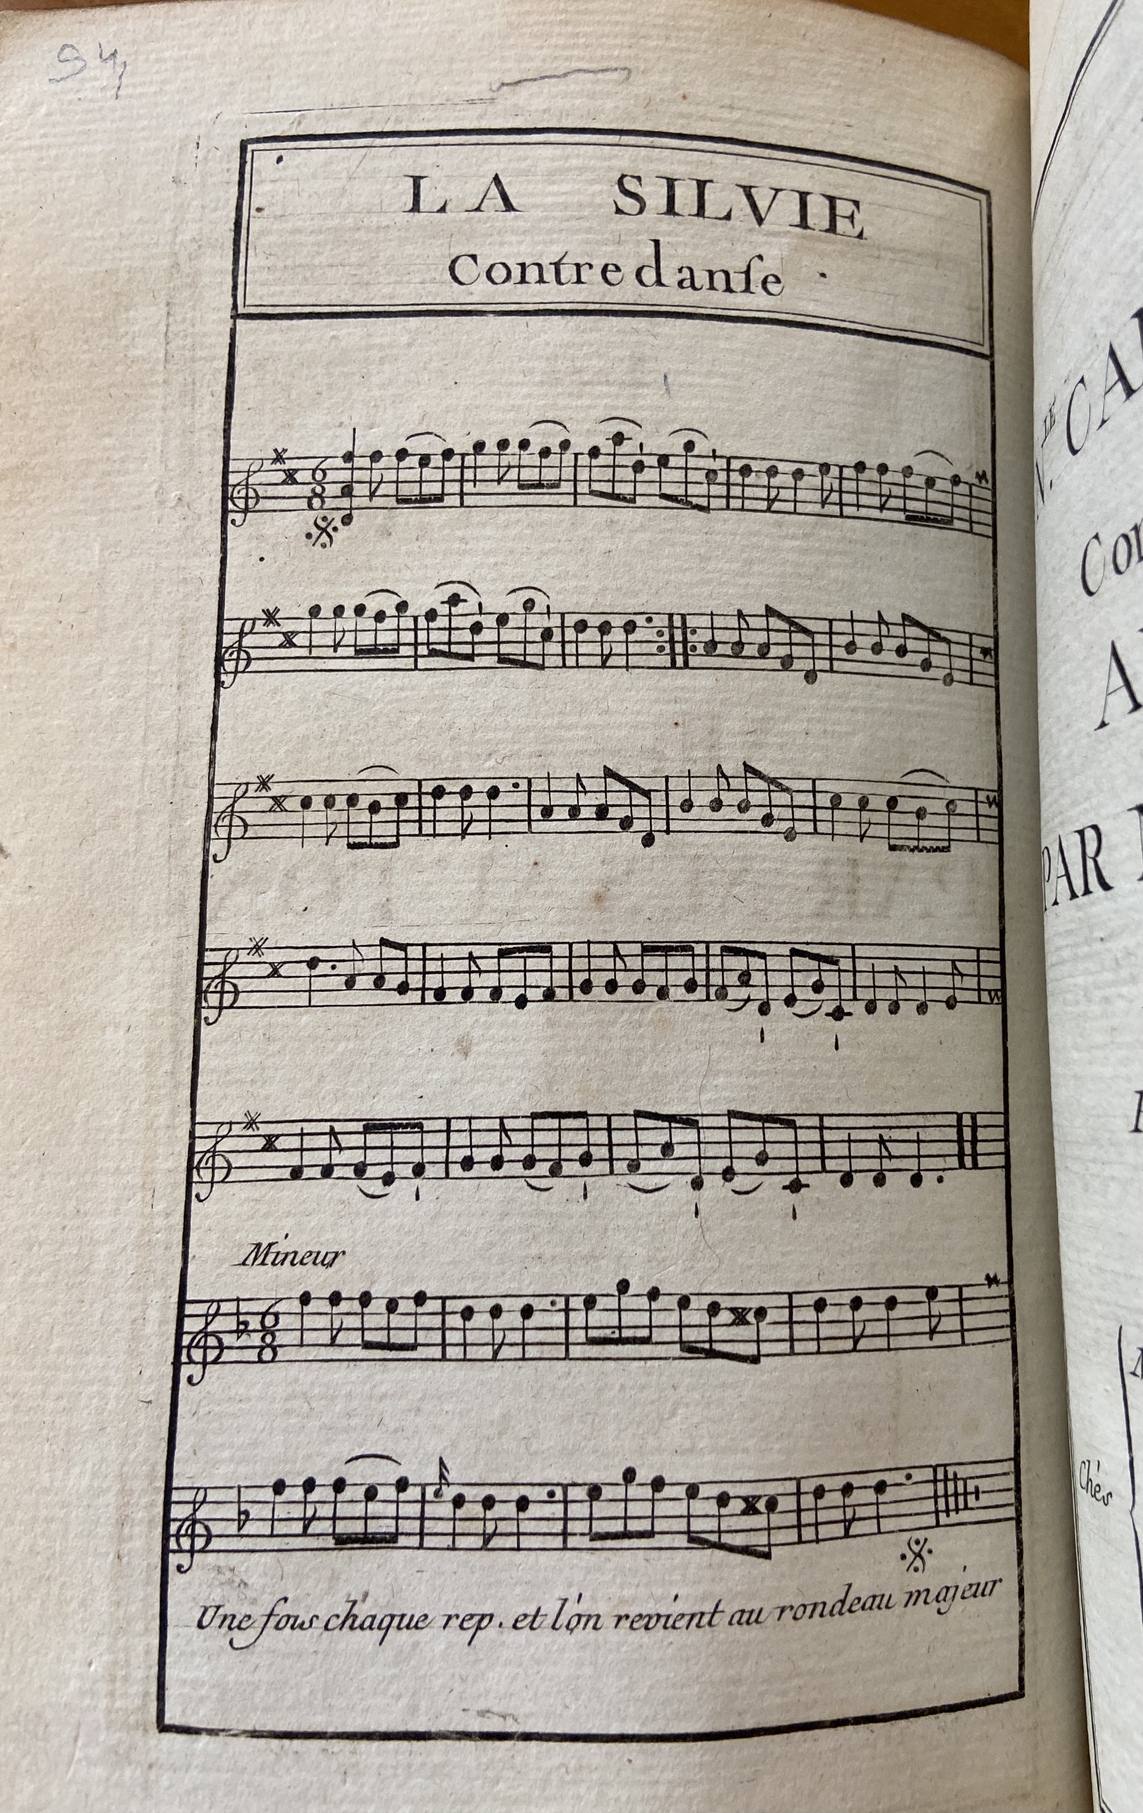 94
LA SILVIE
Contredanſe
6
8
Mineur
6
8
Une fois chaque rep. et l'on revient au rondeau majeur
CA
Con
A
PAR
Chés